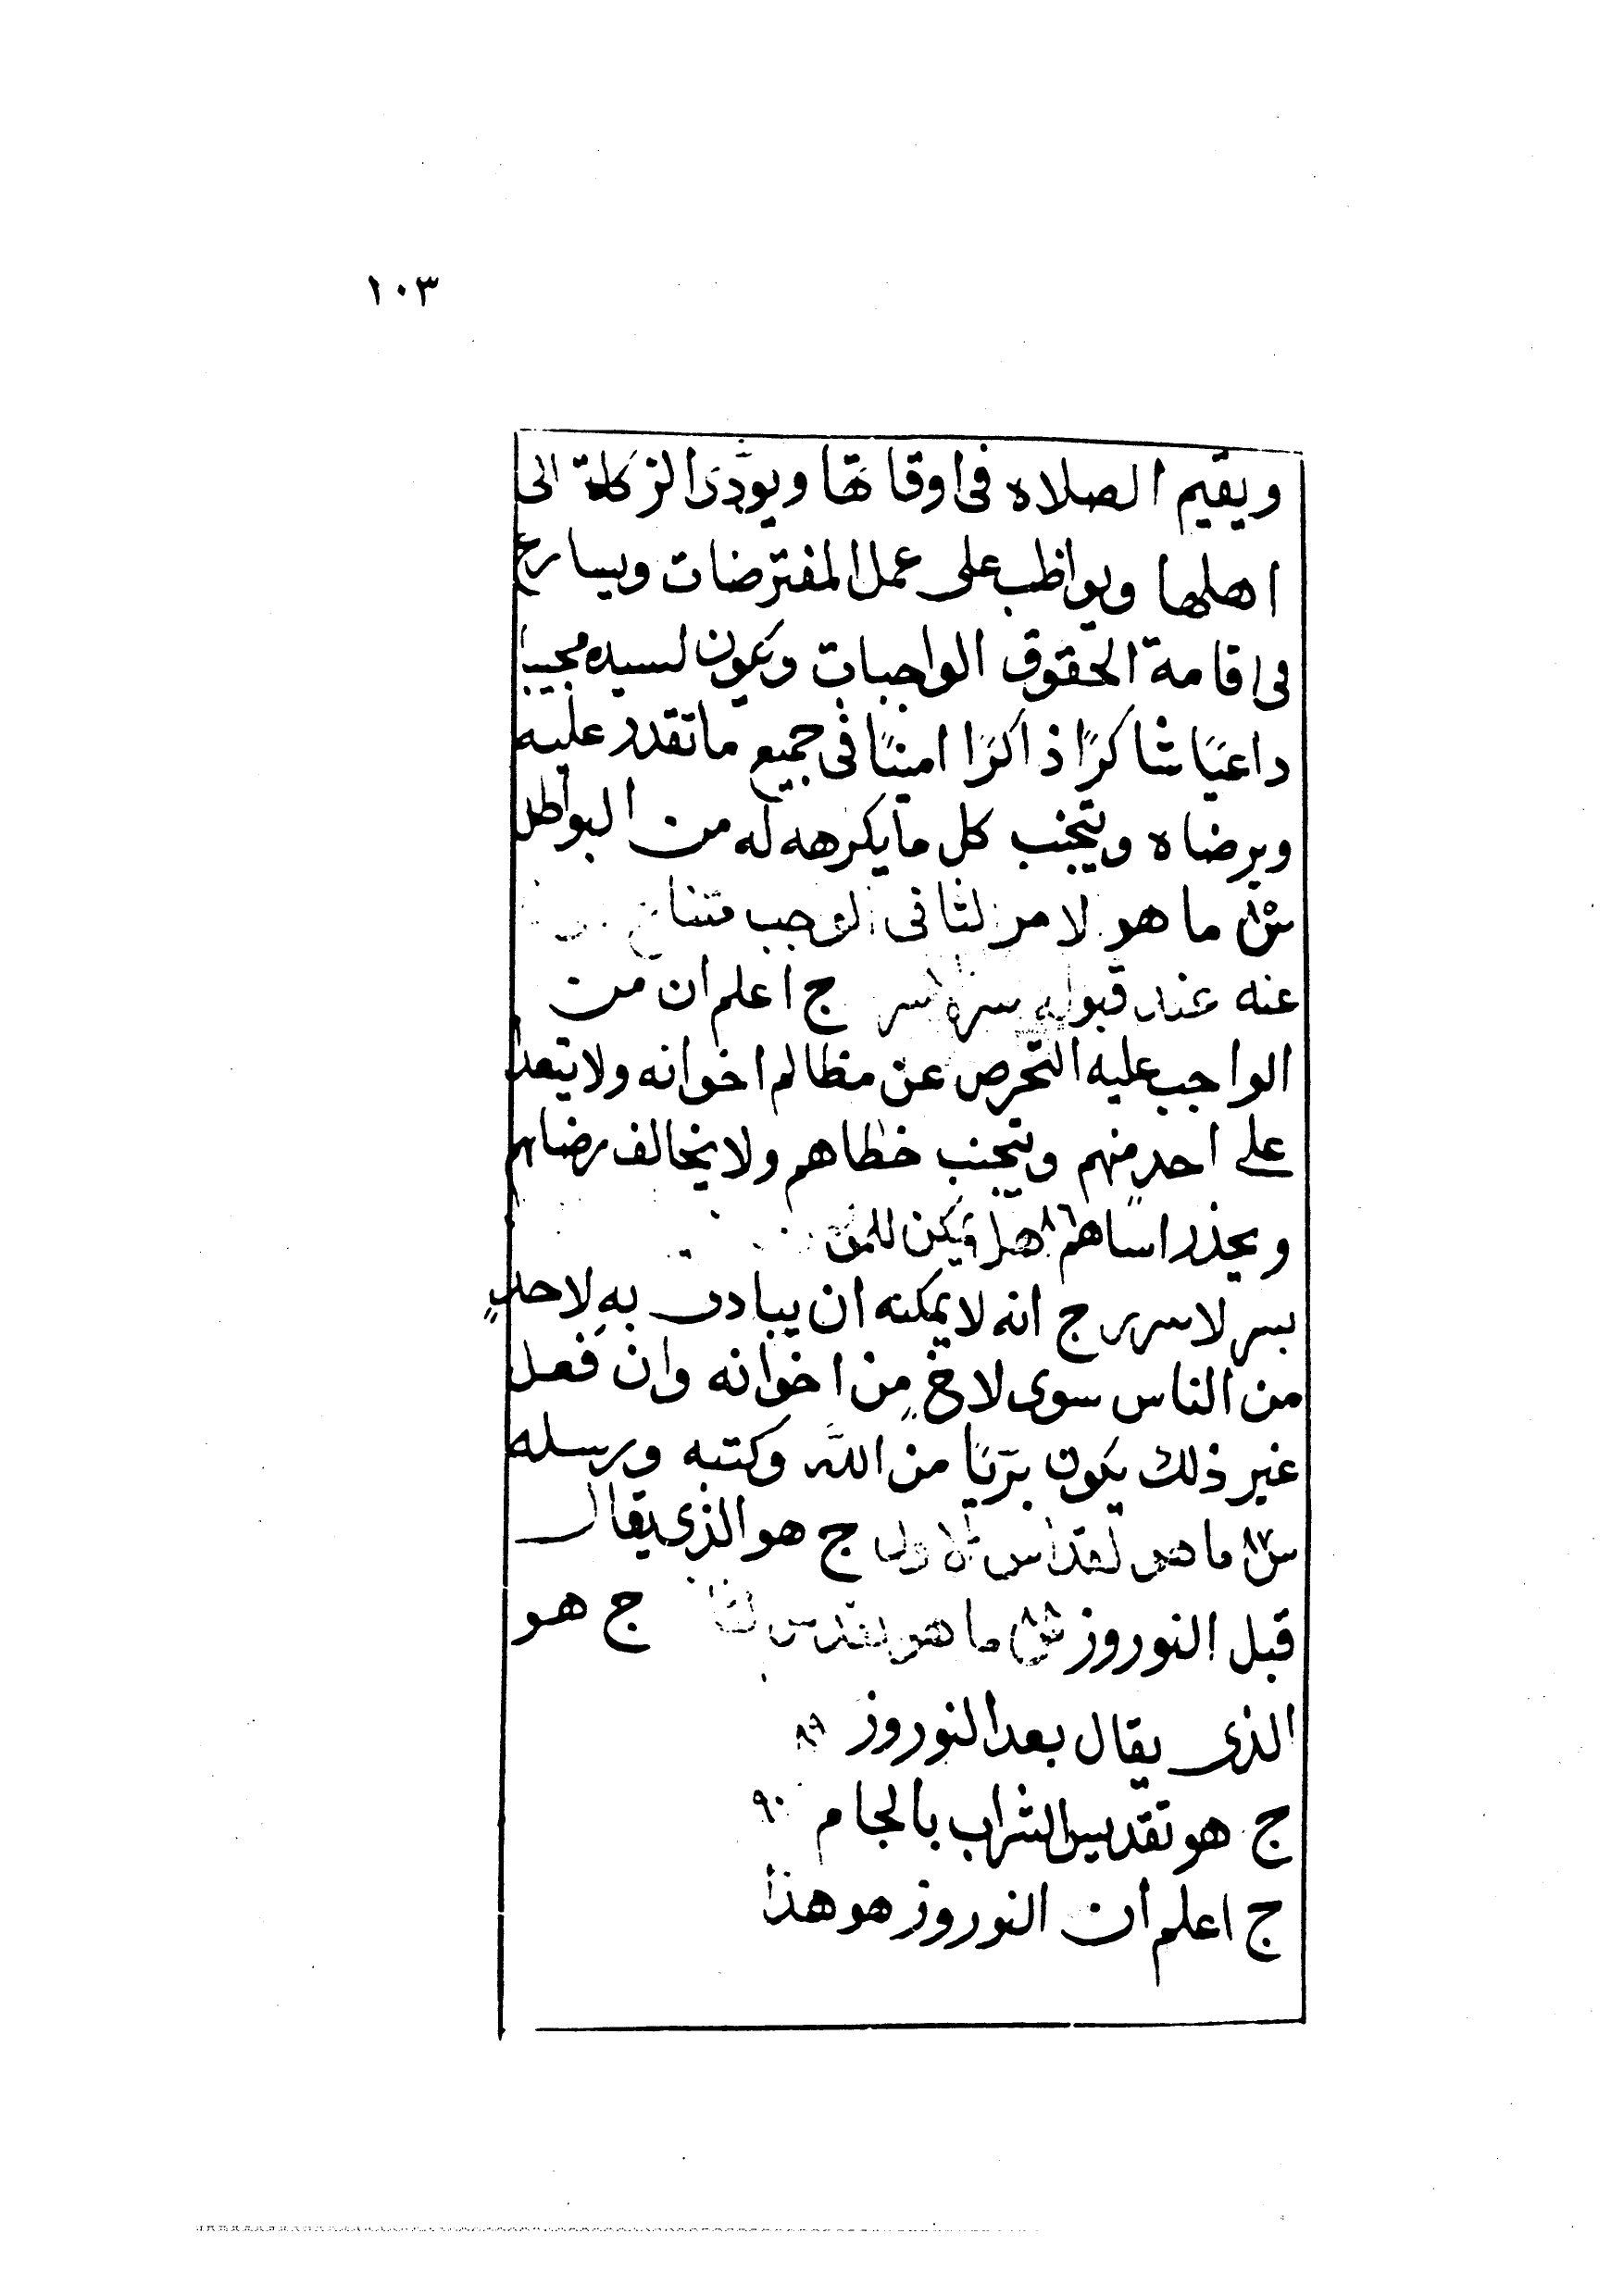 ١٠٣
ويقيم الصلاه فى اوقاتها ويؤدى الزكاة الى
اهلها ويواظب على عمل المفترضات ويسارع
فى اقامة الحقوق الواجبات ويكون لسيده مجيبا
داعيًا شاكرًا ذاكرًا امينًا فى جميع ما تقدر عليه
ويرضاه ويتجنب كل ما يكرهه له من البواطل
س٨٥ ما هو لامر لثانى الوجب
عنه عند قبوله سر ج اعلم ان من
الواجب عليه التحرص عن مظالم اخوانه ولا يتعدا
على احدٍ منهم ويتجنب خطاهم ولا يخالف رضاهم
ويحذر اساهم ٨٦ هل يمكن
بسر لاسرر ج انه لا يمكنه ان يبادى به لاحدٍ
من الناس سوى لاخٍ من اخوانه وان فعل
غير ذلك يكون بريًا من الله وكتبه ورسله
س٨٧ ما هو لقداس الاول ج هو الذى يقال
قبل النوروز س٨٨ ما هو ج هو
الذى يقال بعد النوروز ٨٩
ج هو تقديس الشراب بالجام ٩٠
ج اعلم ان النوروز هو هذا